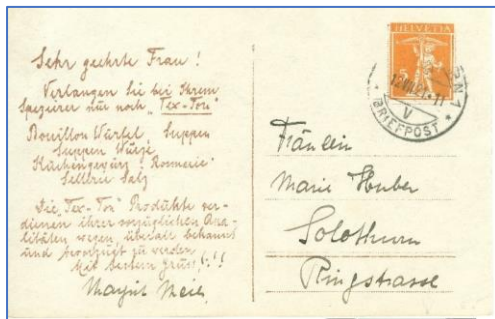 Sehr geehrte Frau !
Verlangen Sie bei Ihrem
Spezierer nur noch "Tex-Ton"
Bouillon Würfel, Suppen
Suppen Würze
Küchengewürz "Rosmerie"
Sellerie Salz
Die "Tex-Ton" Produkte ver-
dienen ihrer vorzüglichen Qua-
litäten wegen überall bekannt
und bevorzugt zu werden
Mit bestem Gruss, !!!
Margrit Meier
HELVETIA
BRIEFPOST
Fräulein
Marie Huber
Solothurn
Ringstrasse